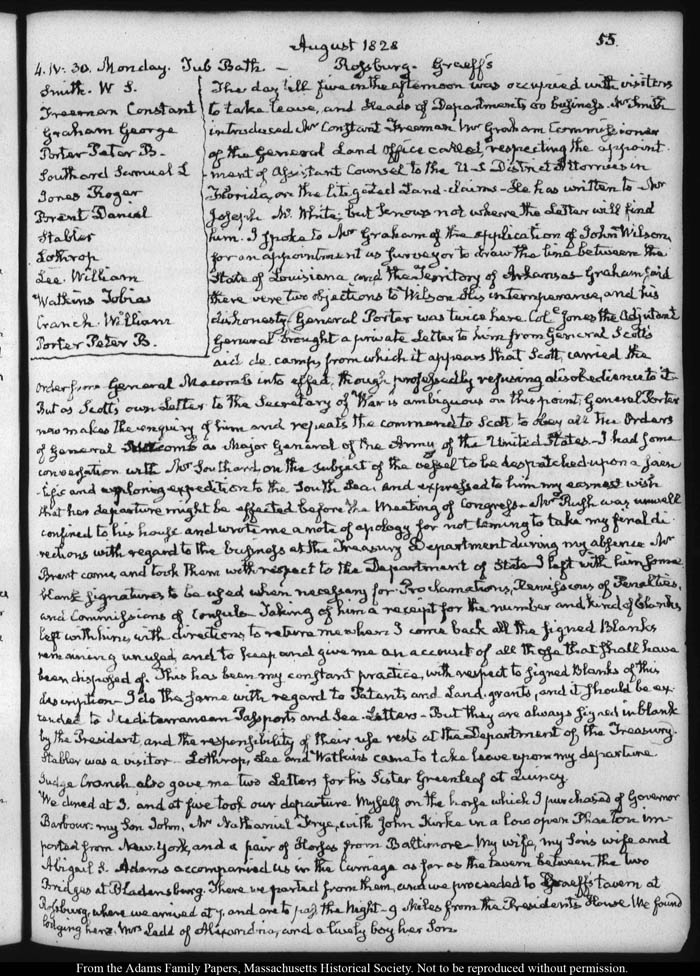 August 1828
55.
4. IV. 30. Monday. Tub Bath — Rossburg. Graeff's
Smith. W S.
Freeman Constant
Graham George
Porter Peter B.
Southard Samuel L
Jones Roger
Brent Daniel
Stabler
Lothrop
Lee. William
Watkins Tobias
Cranch. William
Porter Peter B.
The day till five in the afternoon was occupied with visitors
to take leave, and Heads of Departments on business. Mr Smith
introduced Mr Constant Freeman. Mr Graham Commissioner
of the General Land Office called, respecting the appoint-
-ment of Assistant Counsel to the U.S District Attornies in
Florida, on the litigated Land-claims. He has written to Mr
Joseph M. White; but knows not where the Letter will find
him. I spoke to Mr Graham of the application of John Wilson,
for an appointment as Surveyor to draw the line between the
State of Louisiana and the Territory of Arkansas. Graham said
there were two objections to Wilson. His intemperance, and his
dishonesty. General Porter was twice here. Col. Jones the Adjutant
General brought a private Letter to him from General Scott's
aid de camp, from which it appears that Scott, carried the
Order from General Macomb into effect, though professedly refusing disobedience to it.
But as Scott's own Letter to the Secretary of War is ambiguous on this point, General Porter
now makes the enquiry of him and repeats the command to Scott to obey all the Orders
of General Macomb as Major General of the Army of the United States. I had some
conversation with Mr Southard on the subject of the vessel to be despatched upon a scien-
-tific and exploring expedition to the South Sea; and expressed to him my earnest wish
that her departure might be effected before the meeting of Congress. Mr Rush was unwell
confined to his house and wrote me a note of apology for not coming to take my final di-
rections with regard to the business at the Treasury Department during my absence. Mr
Brent came, and took them with respect to the Department of State. I left with him some
blank signatures, to be used when necessary for Proclamations, Remissions of Penalties,
and Commissions of Consuls. Taking of him a receipt for the number and kind of blanks
left with him, with directions to return me when I come back all the signed Blanks
remaining unused, and to keep and give me an account of all those that shall have
been disposed of. This has been my constant practice, with respect to signed blanks of this
description. I do the same with regard to Patents and Land-grants, and it should be ex-
tended to Mediterranean Passports and Sea-Letters. But they are always signed in blank
by the President, and the responsibility of their use rests at the Department of the Treasury.
Stabler was a visitor. Lothrop, Lee and Watkins came to take leave upon my departure.
Judge Cranch also gave me two Letters for his Sister Greenleaf at Quincy.
We dined at 3. and at five took our departure. Myself on the horse which I purchased of Governor
Barbour: my Son John, Mr Nathaniel Frye, with John Kirke in a low open Phaeton im-
ported from New-York, and a pair of Horses from Baltimore. My wife, my Son's wife and
Abigail S. Adams accompanied us in the Carriage as far as the tavern between the two
Bridges at Bladensburg. There we parted from them, and we proceeded to Graeff's tavern at
Rossburg, where we arrived at 7. and are to pass the Night. 9 Miles from the President's House. We found
lodging here Mrs Ladd of Alexandria, and a lively boy her Son.
From the Adams Family Papers, Massachusetts Historical Society. Not to be reproduced without permission.